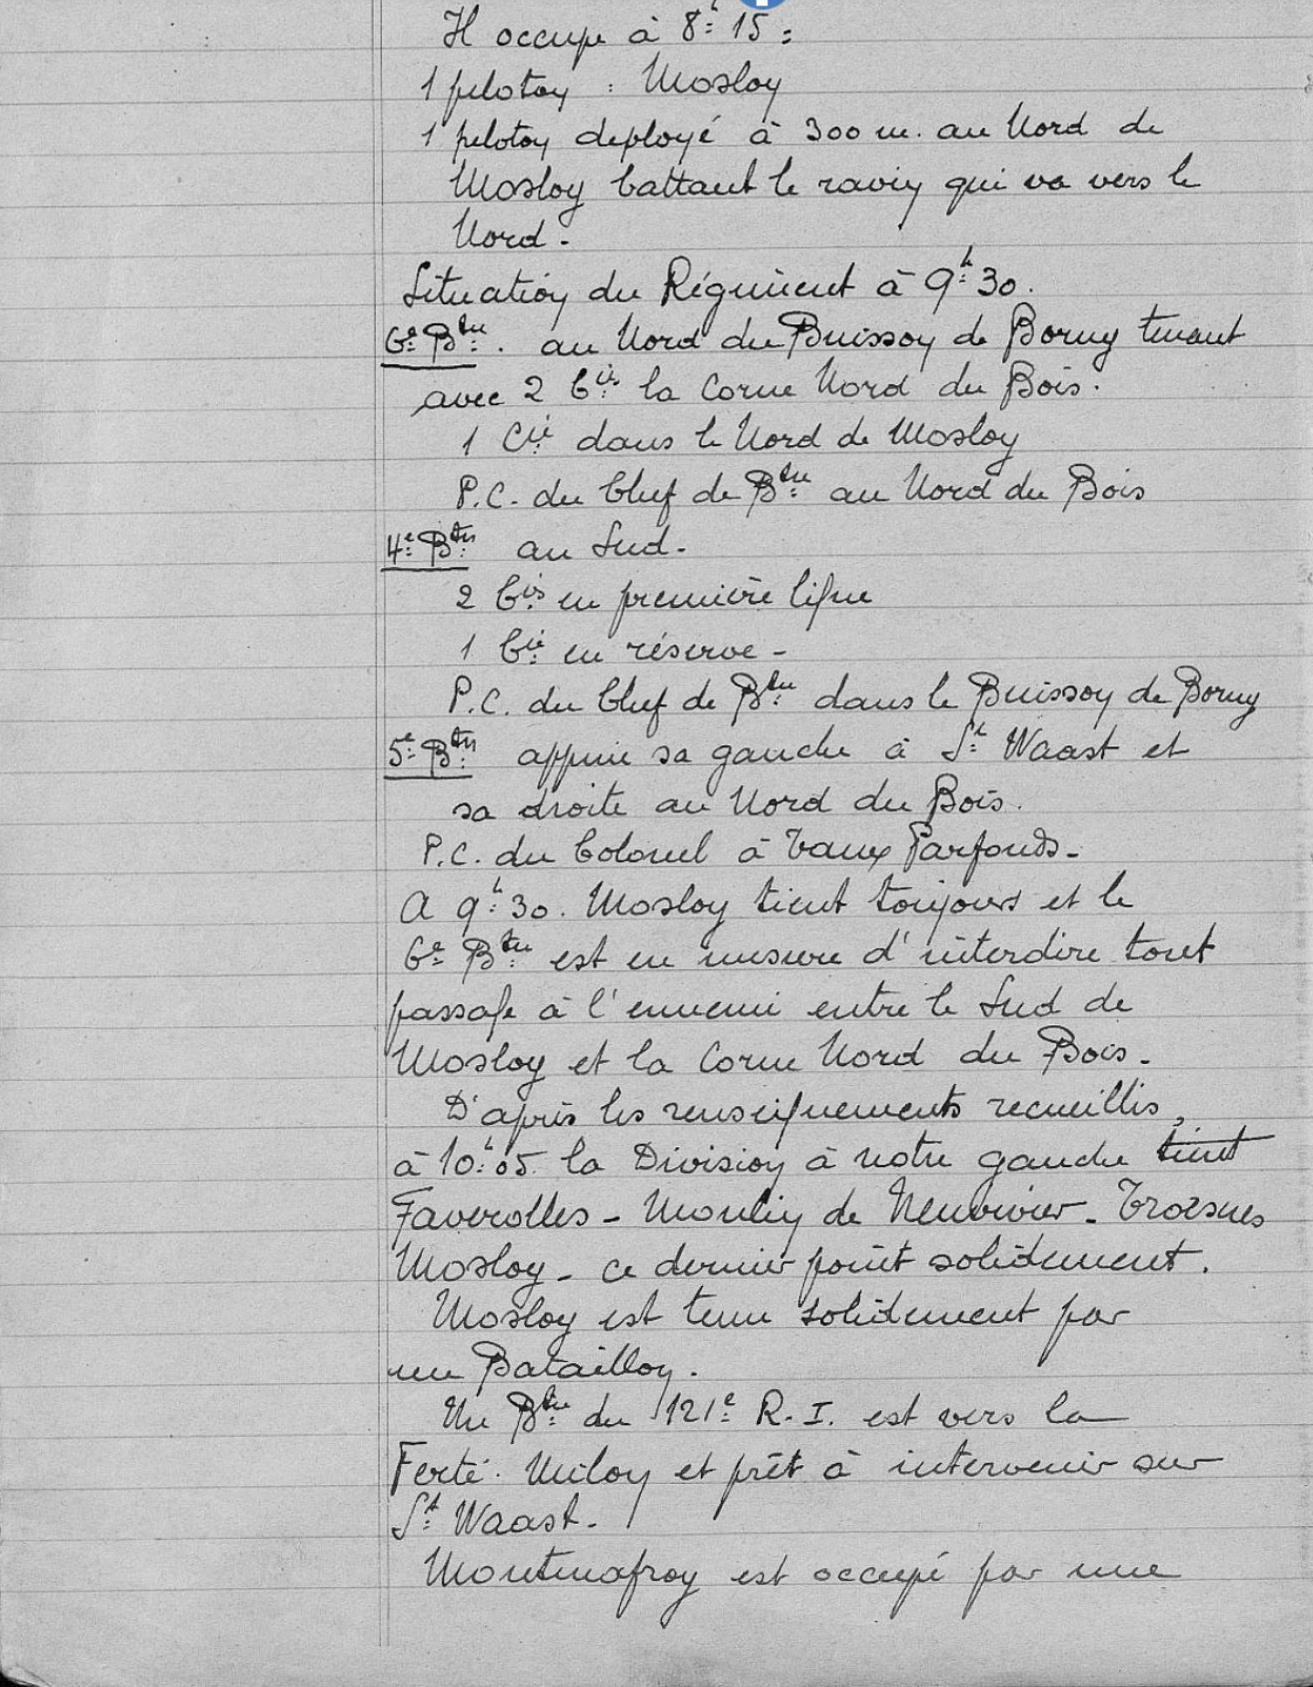 Il occupe à 8h 15 :
1 peloton : Mosloy
1 peloton deployé à 300 m. au Nord de
Mosloy battant le ravin qui va vers le
Nord.
Situation du Régiment à 9h 30.
6e Bton. au Nord du Buisson de Borny tenant
avec 2 Cies la Corne Nord du Bois.
1 Cie dans le Nord de Mosloy
P.C. du Chef de Bton au Nord du Bois
4e Bton au Sud.
2 Cies en première ligne
1 Cie en réserve -
P.C. du Chef de Bton dans le Buisson de Borny
5e Bton appuie sa gauche à St Waast et
sa droite au Nord du Bois.
P.C. du Colonel à Vaux Parfonds.
A 9h 30. Mosloy tient toujours et le
6e Bton est en mesure d'interdire tout
passage à l'ennemi entre le Sud de
Mosloy et la Corne Nord du Bois.
D'après les renseignements recueillis,
à 10h 05 la Division à notre gauche tient
Faverolles - Moulin de Neuvivier - Troesnes
Mosloy - ce dernier point solidement.
Mosloy est tenu solidement par
un Bataillon.
Un Bton du 121e R.I. est vers la
Ferté. Milon et prêt à intervenir sur
St Waast.
Montmafroy est occupé par une